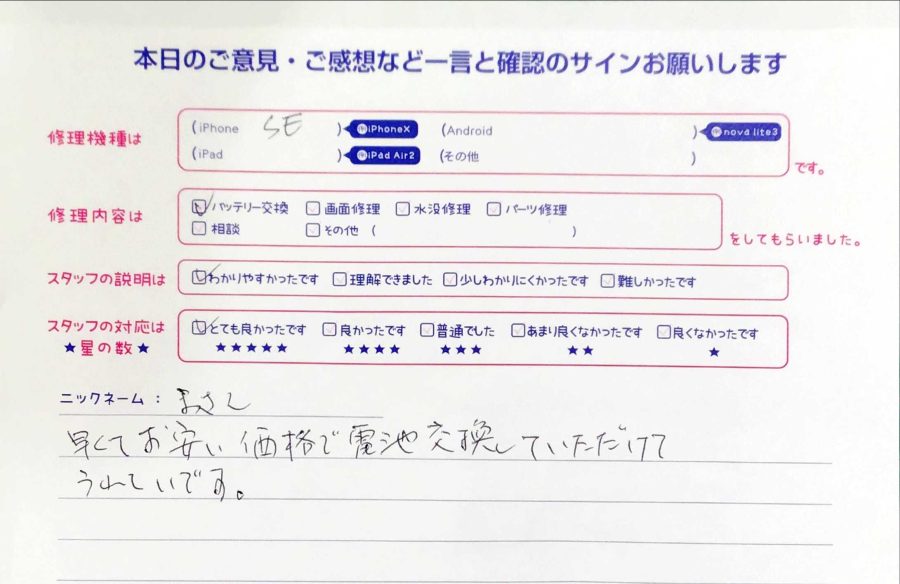 本日のご意見・ご感想など一言と確認のサインお願いします
修理機種は
(iPhone SE ) iPhoneX (Android ) nova lite3
(iPad ) iPad Air2 (その他 )
です。
修理内容は
バッテリー交換 画面修理 水没修理 パーツ修理
相談 その他 ( )
をしてもらいました。
スタッフの説明は わかりやすかったです 理解できました 少しわかりにくかったです 難しかったです
スタッフの対応は とても良かったです 良かったです 普通でした あまり良くなかったです 良くなかったです
★星の数★ ★★★★★ ★★★★ ★★★ ★★ ★
ニックネーム : まさし
早くてお安い価格で電池交換していただけて
うれしいです。